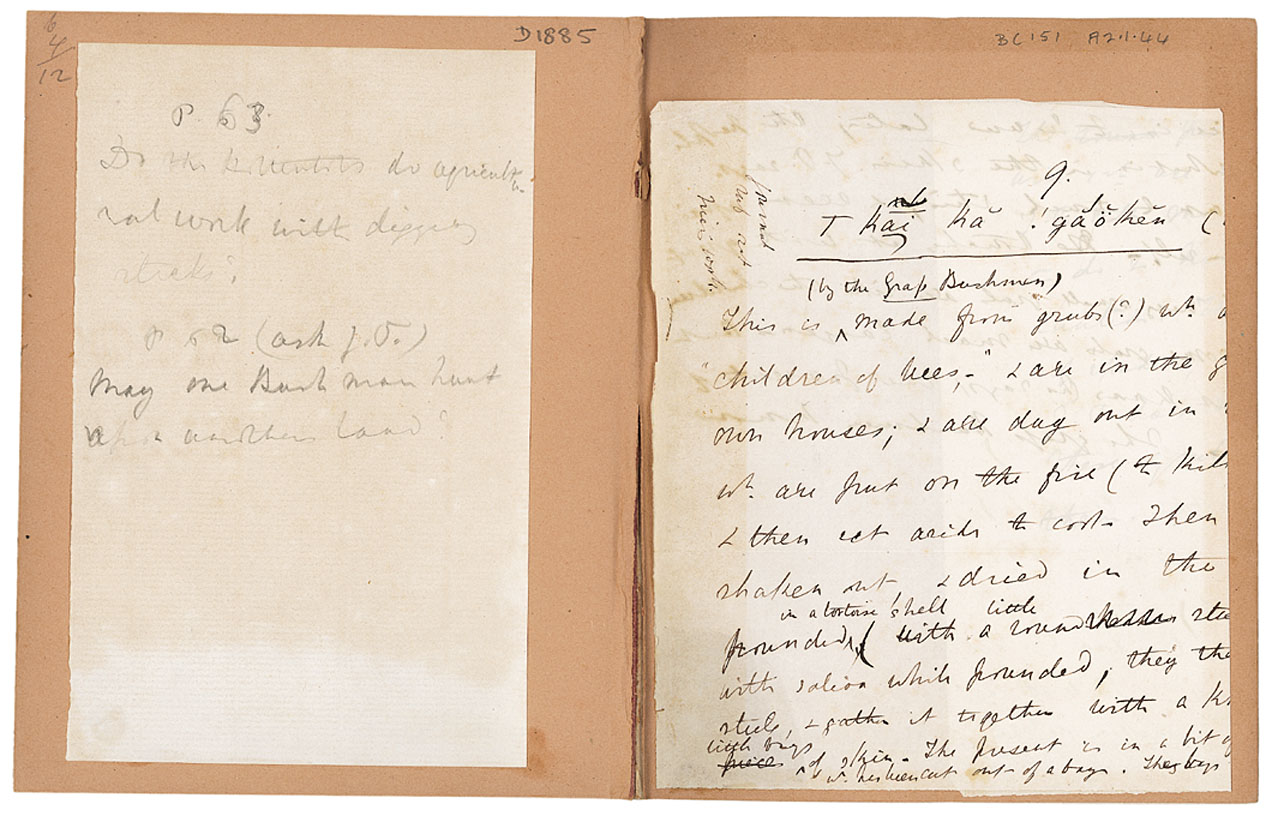 6
4
12
D1885
p. 63.
Do the do agricultu-
ral work with digging
sticks?
p 62 (ask J.T.)
May one Bushman hunt
upon another's land?
BC 151 A2.1.44
9.
kă !găŏkĕn (
(by the Grass Bushmen)
This is ^ made from grubs(?) wh.
"children of bees," & are in the g
own houses; & are dug out in
wh. are put on the fire (to kill
& then set aside to cool. Then
shaken out, & dried in the
in a tortoise shell little
pounded, (with a round stee
with saliva while pounded, they the
& gather it together with a kn
little bags
pieces ^ of skin. The present is in a bit of
wh. has been cut out of a bag. These bags